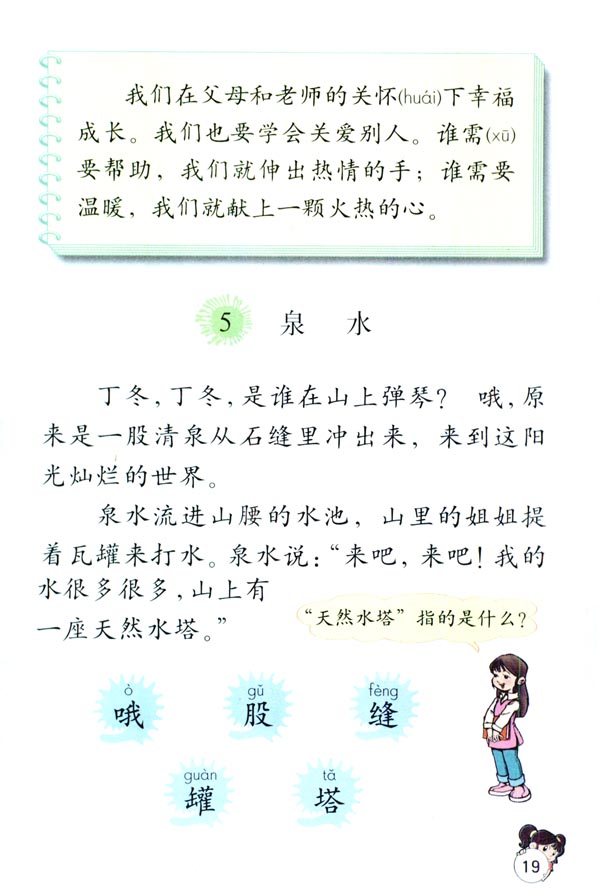 我们在父母和老师的关怀(huái)下幸福
成长。我们也要学会关爱别人。谁需(xū)
要帮助，我们就伸出热情的手；谁需要
温暖，我们就献上一颗火热的心。
5 泉 水
丁冬，丁冬，是谁在山上弹琴？ 哦，原
来是一股清泉从石缝里冲出来，来到这阳
光灿烂的世界。
泉水流进山腰的水池，山里的姐姐提
着瓦罐来打水。泉水说：“来吧，来吧！我的
水很多很多，山上有
一座天然水塔。”
“天然水塔”指的是什么？
ò gǔ fèng
哦 股 缝
guàn tǎ
罐 塔
19